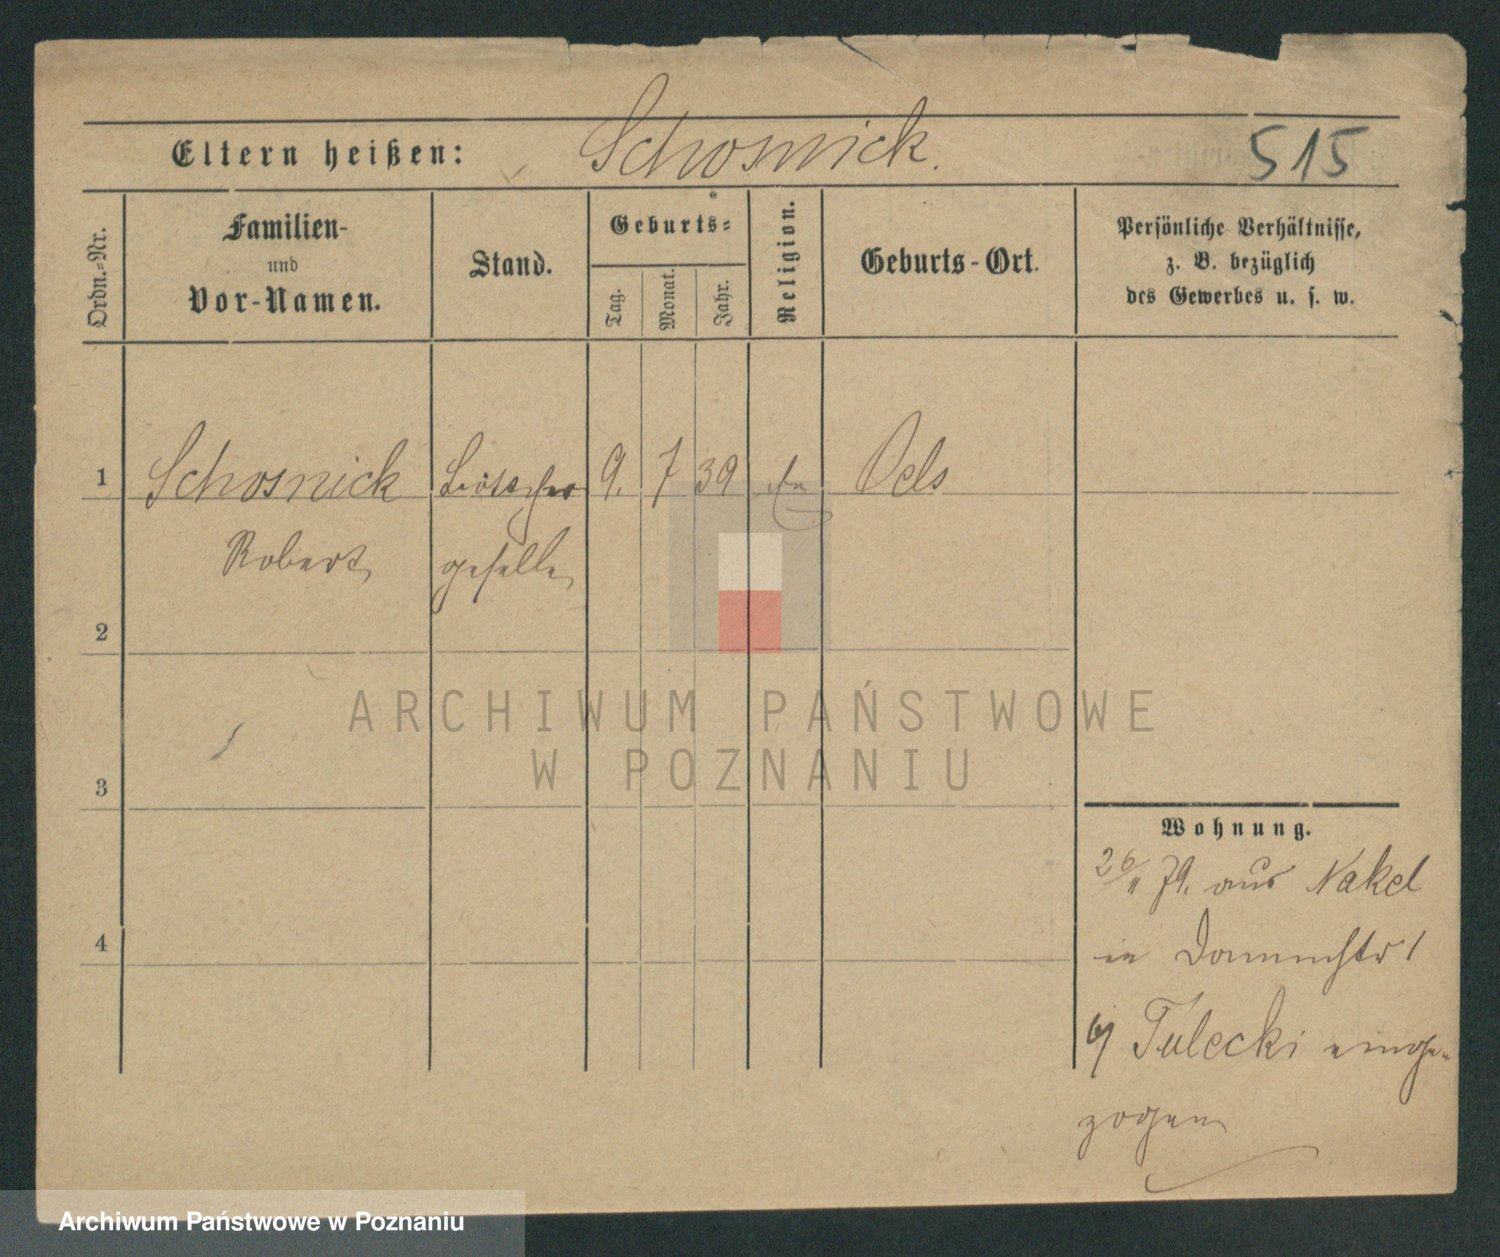 Eltern heißen: Schosnick. 515
Ordn.-Nr.
Familien-
und
Vor-Namen.
Stand.
Geburts-
Tag.
Monat.
Jahr.
Religion.
Geburts-Ort.
Persönliche Verhältnisse,
z. B. bezüglich
des Gewerbes u. s. w.
1 Schosnick 9. 7 39 Oels
Robert geselle
2
3
4
ARCHIWUM PAŃSTWOWE
W POZNANIU
Wohnung.
26/11 79. aus Nakel
in
Tulecki einge-
zogen
Archiwum Państwowe w Poznaniu